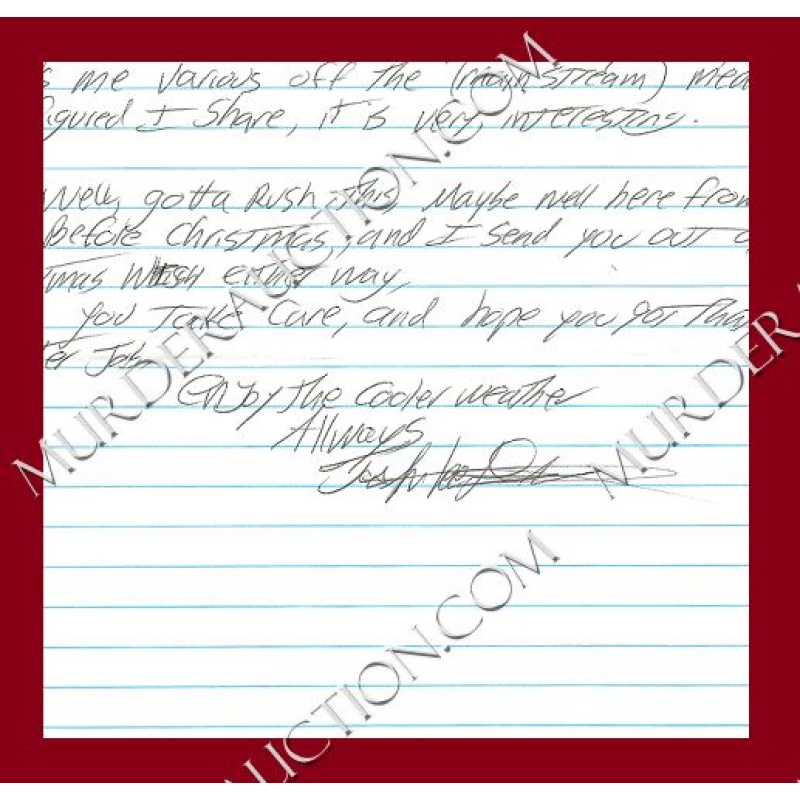 s me various off the (main stream) mea
igured I Share, it is very interesting.
Well, gotta Rush This, Maybe well here from
Before Christmas, and I Send you out a
tmas Wish either way,
you Take Care, and hope you got that
ter Job
Enjoy The Cooler weather
Allways
Josh
MURDERAUCTION.COM
MURDERA
RAUCTION.COM